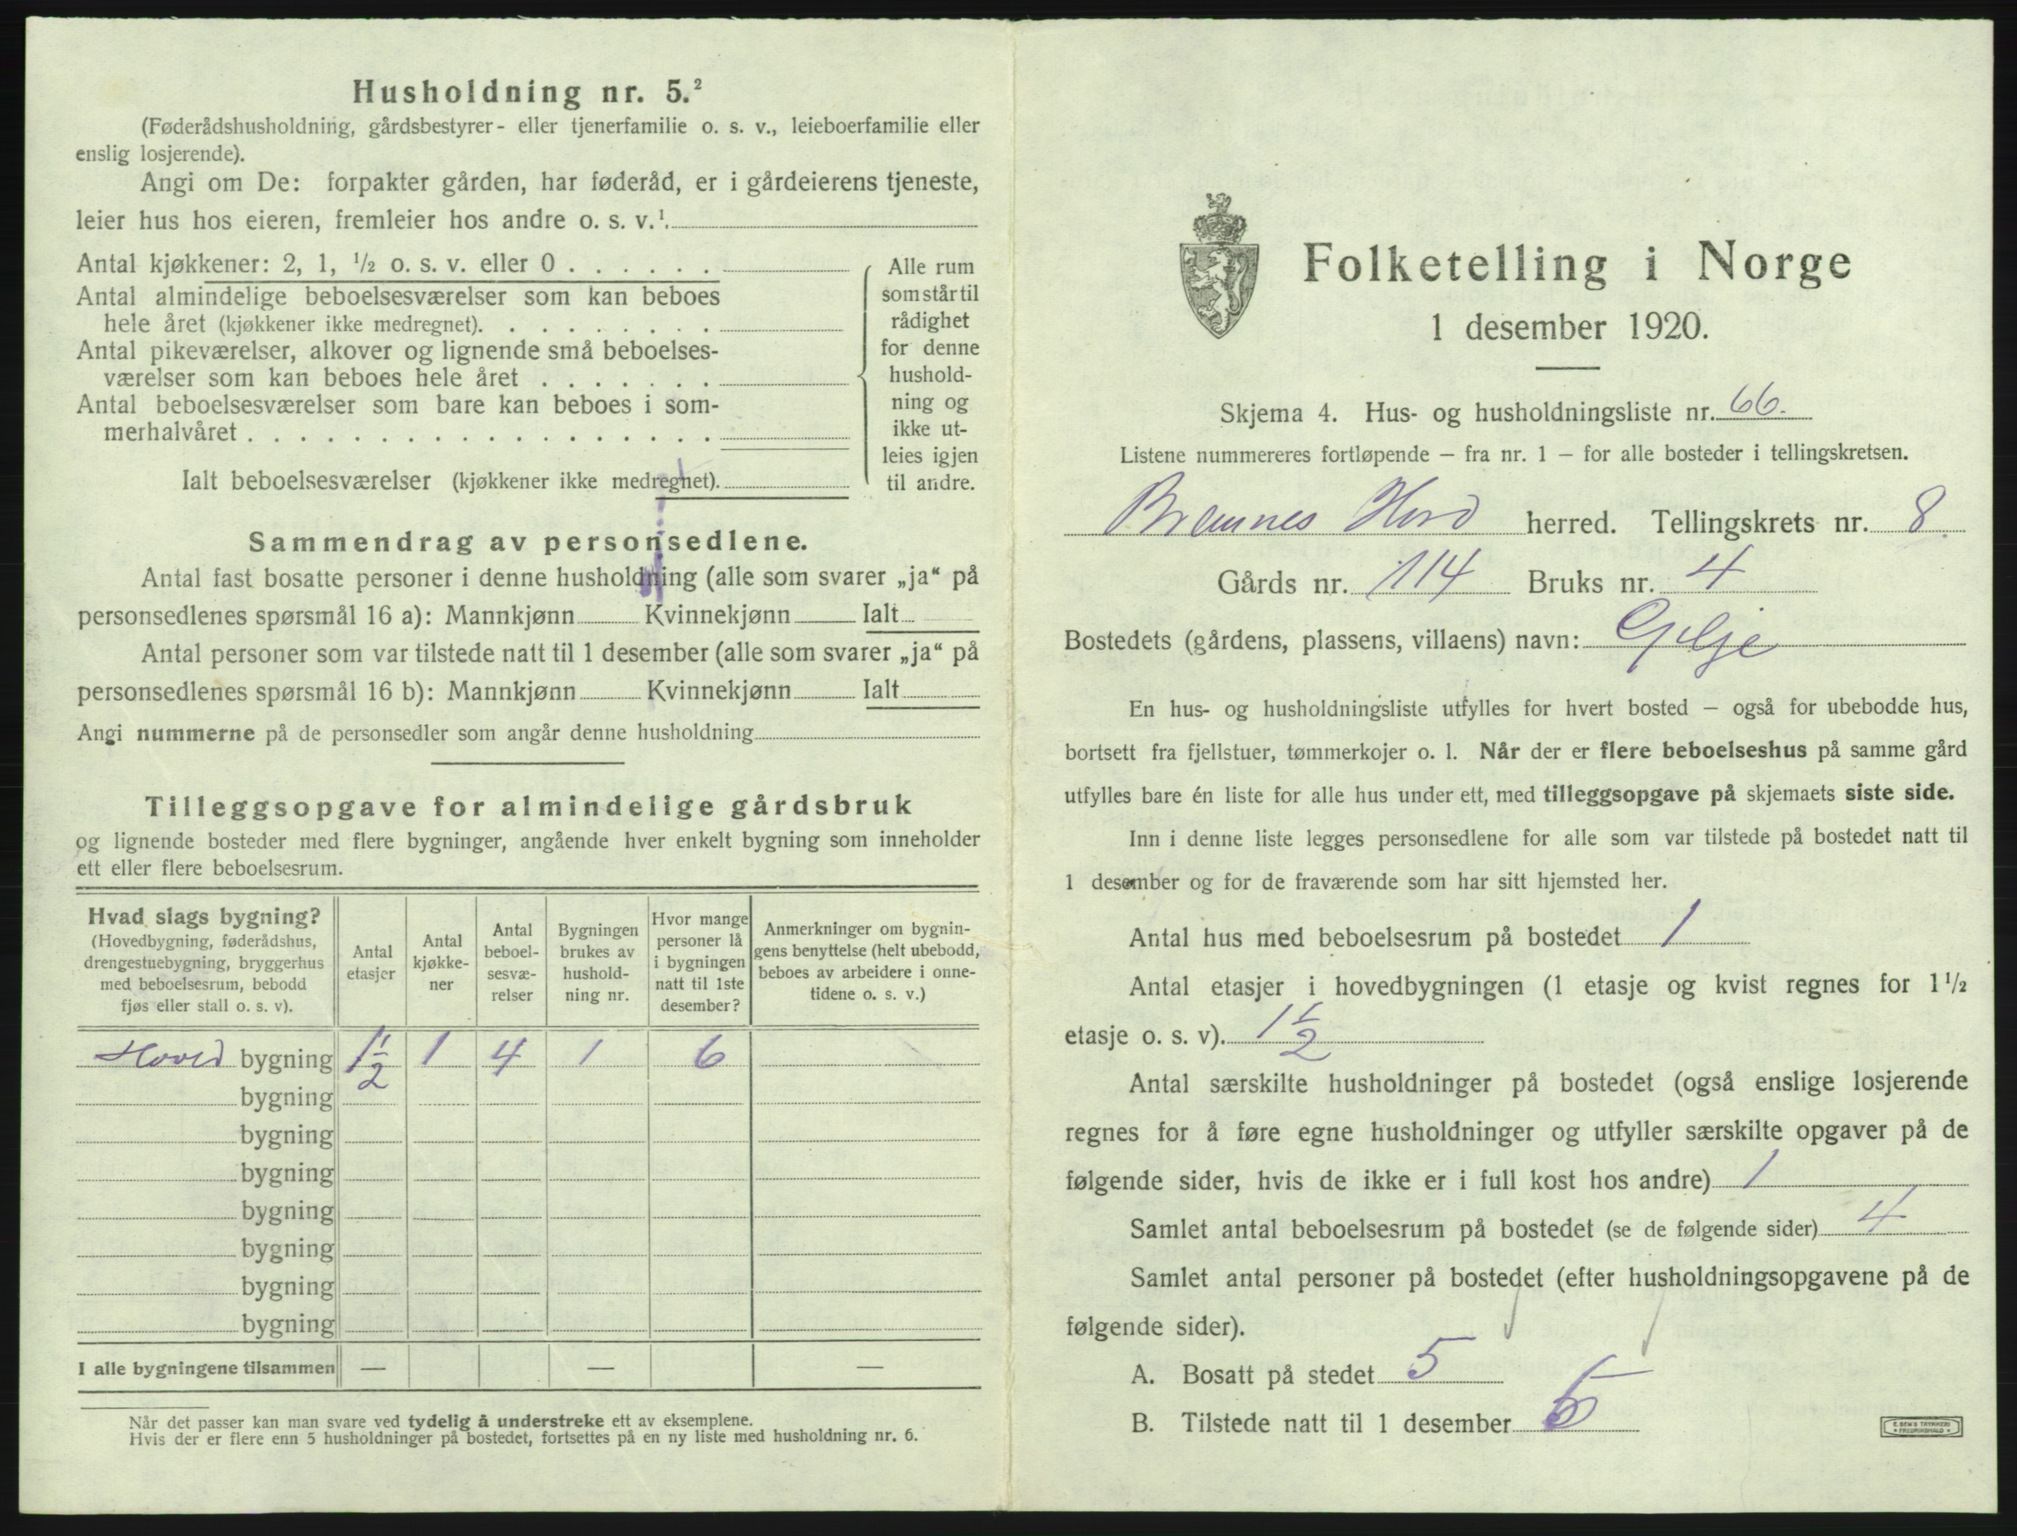 Husholdning nr. 5.²
(Føderådshusholdning, gårdsbestyrer- eller tjenerfamilie o. s. v., leieboerfamilie eller
enslig losjerende).
Angi om De: forpakter gården, har føderåd, er i gårdeierens tjeneste,
leier hus hos eieren, fremleier hos andre o. s. v.¹.
Antal kjøkkener: 2, 1, ½ o. s. v. eller 0 . . . . . .
Antal almindelige beboelsesværelser som kan beboes
hele året (kjøkkener ikke medregnet). . . . . . . . .
Antal pikeværelser, alkover og lignende små beboelses-
værelser som kan beboes hele året . . . . . . .
Antal beboelsesværelser som bare kan beboes i som-
merhalvåret . . . . . . . . . . . . . . . . . .
Ialt beboelsesværelser (kjøkkener ikke medregnet).
Alle rum
som står til
rådighet
for denne
hushold-
ning og
ikke ut-
leies igjen
til andre.
Sammendrag av personsedlene.
Antal fast bosatte personer i denne husholdning (alle som svarer „ja“ på
personsedlenes spørsmål 16 a): Mannkjønn Kvinnekjønn Ialt
Antal personer som var tilstede natt til 1 desember (alle som svarer „ja“ på
personsedlenes spørsmål 16 b): Mannkjønn Kvinnekjønn Ialt
Angi nummerne på de personsedler som angår denne husholdning
Tilleggsopgave for almindelige gårdsbruk
og lignende bosteder med flere bygninger, angående hver enkelt bygning som inneholder
ett eller flere beboelsesrum.
Hvad slags bygning?
(Hovedbygning, føderådshus,
drengestuebygning, bryggerhus
med beboelsesrum, bebodd
fjøs eller stall o. s. v).
Antal
etasjer
Antal
kjøkke-
ner
Antal
beboel-
sesvæ-
relser
Bygningen
brukes av
hushold-
ning nr.
Hvor mange
personer lå
i bygningen
natt til 1ste
desember?
Anmerkninger om bygnin-
gens benyttelse (helt ubebodd,
beboes av arbeidere i onne-
tidene o. s. v.)
Hoved bygning 1½ 1 4 1 6
bygning
bygning
bygning
bygning
bygning
bygning
bygning
I alle bygningene tilsammen — — —
Når det passer kan man svare ved tydelig å understreke ett av eksemplene.
Hvis der er flere enn 5 husholdninger på bostedet, fortsettes på en ny liste med husholdning nr. 6.
Folketelling i Norge
1 desember 1920.
Skjema 4. Hus- og husholdningsliste nr. 66.
Listene nummereres fortløpende — fra nr. 1 — for alle bosteder i tellingskretsen.
Bremnes Hord herred. Tellingskrets nr. 8.
Gårds nr. 114 Bruks nr. 4
Bostedets (gårdens, plassens, villaens) navn: Gilje
En hus- og husholdningsliste utfylles for hvert bosted — også for ubebodde hus,
bortsett fra fjellstuer, tømmerkojer o. l. Når der er flere beboelseshus på samme gård
utfylles bare én liste for alle hus under ett, med tilleggsopgave på skjemaets siste side.
Inn i denne liste legges personsedlene for alle som var tilstede på bostedet natt til
1 desember og for de fraværende som har sitt hjemsted her.
Antal hus med beboelsesrum på bostedet 1
Antal etasjer i hovedbygningen (1 etasje og kvist regnes for 1½
etasje o. s. v). 1½
Antal særskilte husholdninger på bostedet (også enslige losjerende
regnes for å føre egne husholdninger og utfyller særskilte opgaver på de
følgende sider, hvis de ikke er i full kost hos andre) 1
Samlet antal beboelsesrum på bostedet (se de følgende sider) 4
Samlet antal personer på bostedet (efter husholdningsopgavene på de
følgende sider).
A. Bosatt på stedet 5
B. Tilstede natt til 1 desember
E. SEM'S TRYKKERI
FREDRIKSHALD